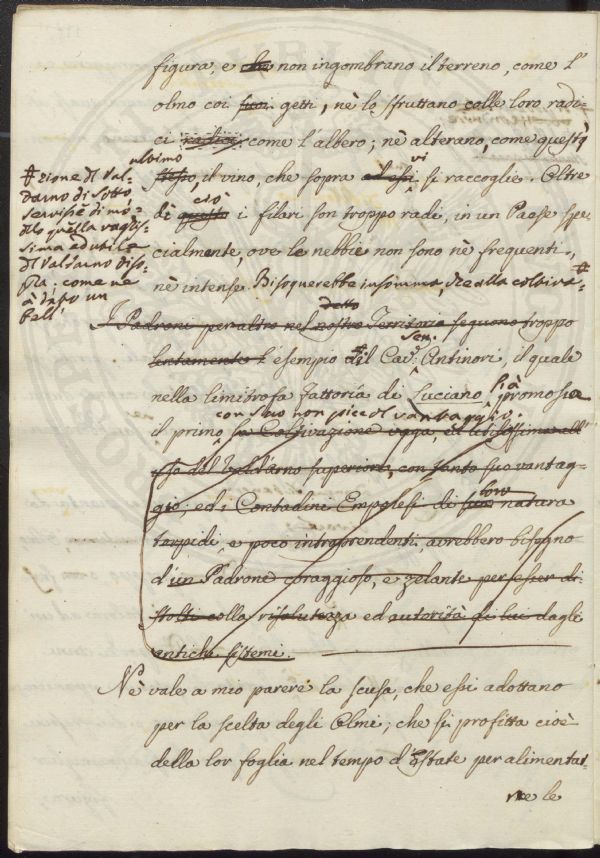 figura, e che non ingombrano il terreno, come l'
olmo coi suoi getti, nè lo sfruttano colle loro radi-
ci radici, come l'albero; nè alterano, come quest'
ultimo
stesso, il vino, che sopra ad essi vi si raccoglie. Oltre
di questo ciò i filari son troppo radi, in un Paese spe-
cialmente, ove le nebbie non sono nè frequenti,
nè intense. Bisognerebbe insomma, che alla coltiva-#
#zione del Val-
darno di sotto
servisse di mo-
dello quella vaghis-
sima ed utile
del Valdarno di so-
pra; come ne
à dato un
bell'
detto
I Padroni peraltro nel nostro Territorio seguono troppo
lentamente l'esempio del Cav. Sen. Antinori, il quale
nella limitrofa Fattoria di Luciano già promosse
con suo non piccol vantaggio.
il primo la Coltivazione vaga, ed utilissima all'
uso del Valdarno superiore, con tanto suo vantag-
gio; ed i Contadini Empolesi di sua loro natura
torpidi, e poco intraprendenti avrebbero bisogno
d'un Padrone coraggioso, e zelante per esser di-
stolti colla risolutezza ed autorità di lui dagli
antichi sistemi.
Nè vale a mio parere la scusa, che essi adottano
per la scelta degli Olmi; che si profitta cioè
della lor foglia nel tempo d'Estate per alimentar-
ne le